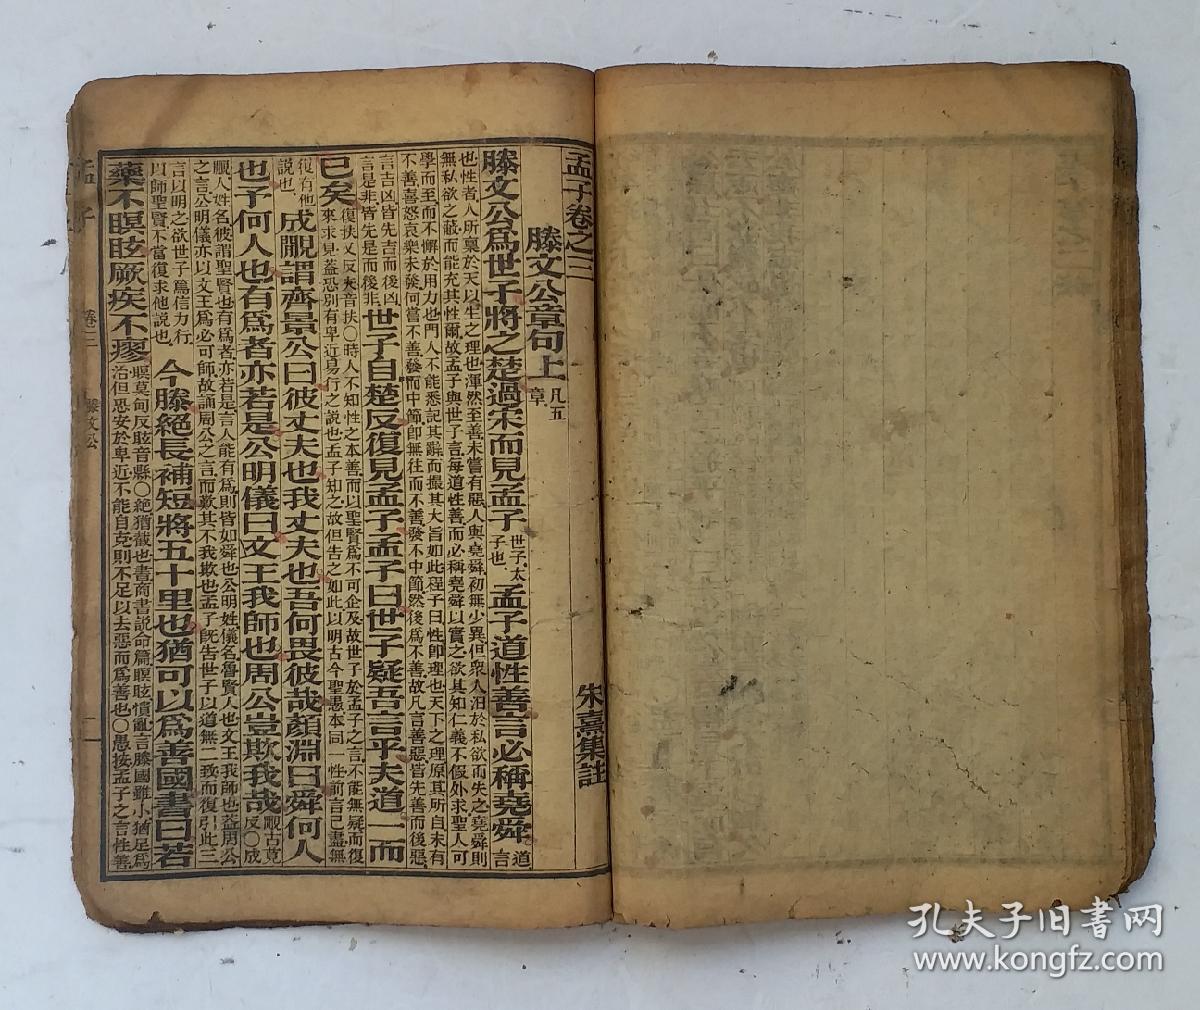 孟子卷之三 朱熹集註
滕文公章句上 凡五章
滕文公爲世子將之楚過宋而見孟子 世子太子也 孟子道性善言必稱堯舜 道言
也性者人所稟於天以生之理也渾然至善未嘗有惡人與堯舜初無少異但衆人汩於私欲而失之堯舜則
無私欲之蔽而能充其性爾故孟子與世子言每道性善而必稱堯舜以實之欲其知仁義不假外求聖人可
學而至而不懈於用力也門人不能悉記其辭而撮其大旨如此程子曰性卽理也天下之理原其所自未有
不善喜怒哀樂未發何嘗不善發而中節卽無往而不善發不中節然後爲不善故凡言善惡皆先善而後惡
言吉凶皆先吉而後凶言是非皆先是而後非 世子自楚反復見孟子孟子曰世子疑吾言乎夫道一而
已矣 復扶又反夫音扶○時人不知性之本善而以聖賢爲不可企及故世子於孟子之言不能無疑而復
來求見蓋恐別有卑近易行之說也孟子知之故但告之如此以明古今聖愚本同一性前言已盡無
復有他說也 成覸謂齊景公曰彼丈夫也我丈夫也吾何畏彼哉顏淵曰舜何人
也予何人也有爲者亦若是公明儀曰文王我師也周公豈欺我哉 覸古莧反○成
覸人姓名彼謂聖賢也有爲者亦若是言人能有爲則皆如舜也公明姓儀名魯賢人也文王我師也蓋周公
之言公明儀亦以文王爲必可師故誦周公之言而歎其不我欺也孟子旣告世子以道無二致而復引此三
言以明之欲世子篤信力行以師聖賢不當復求他說也 今滕絕長補短將五十里也猶可以爲善國書曰若
藥不瞑眩厥疾不瘳 瞑莫甸反眩音縣○絕猶截也書商書說命篇瞑眩憒亂言滕國雖小猶足爲
治但恐安於卑近不能自克則不足以去惡而爲善也○愚按孟子之言性善
孟子 卷三 滕文公
孔夫子旧书网
www.kongfz.com